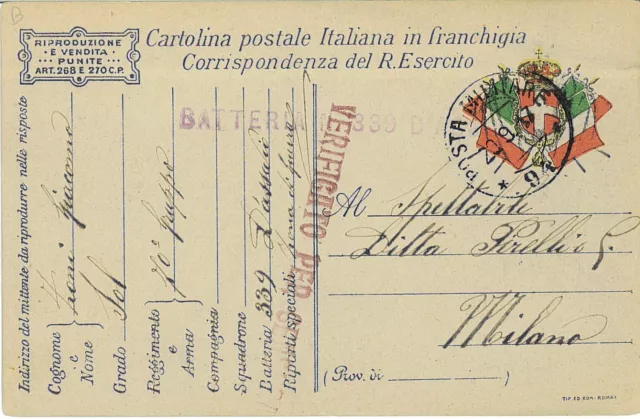 RIPRODUZIONE
E VENDITA
PUNITE
ART. 268 E 270 C.P.
Cartolina postale Italiana in franchigia
Corrispondenza del R. Esercito
POSTA MILITARE
94
BATTERIA 339
VERIFICATO PER
Al Spettabile
Ditta Pirelli e C.
Milano
(Prov. di )
Indirizzo del mittente da riprodurre nelle risposte
Cognome
e
Nome
Giacomo
Grado Sol
Reggimento
e
Arma
10°
Compagnia
Squadrone
Batteria 339 D'assedio
Riparti speciali zona di guerra
TIP. ED. ROMA